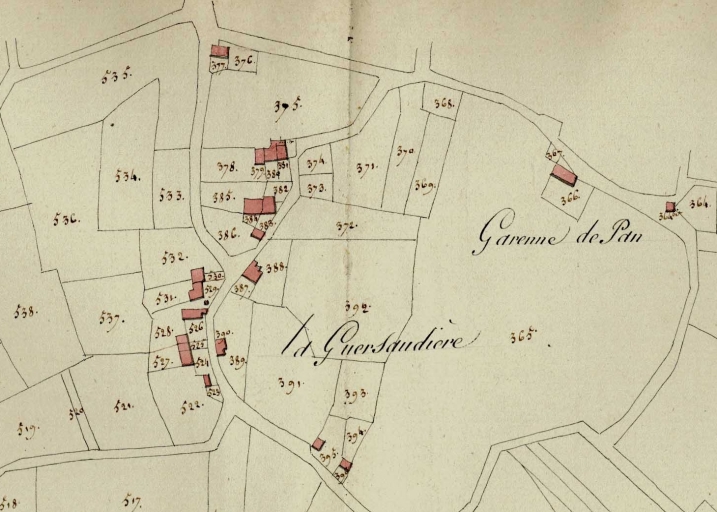 376.
377.
535.
375.
368.
534.
533.
378.
379
381
374.
371.
370.
369.
367.
366.
364.
536.
385.
382
373.
386.
383.
372.
Garenne de Pan
532.
530.
529.
531.
388.
387.
538.
537.
392
365.
la Guersaudière
528.
526
525
527.
524
390.
389.
391.
393.
523
522.
521.
520
519.
394.
395.
396
517.
518.